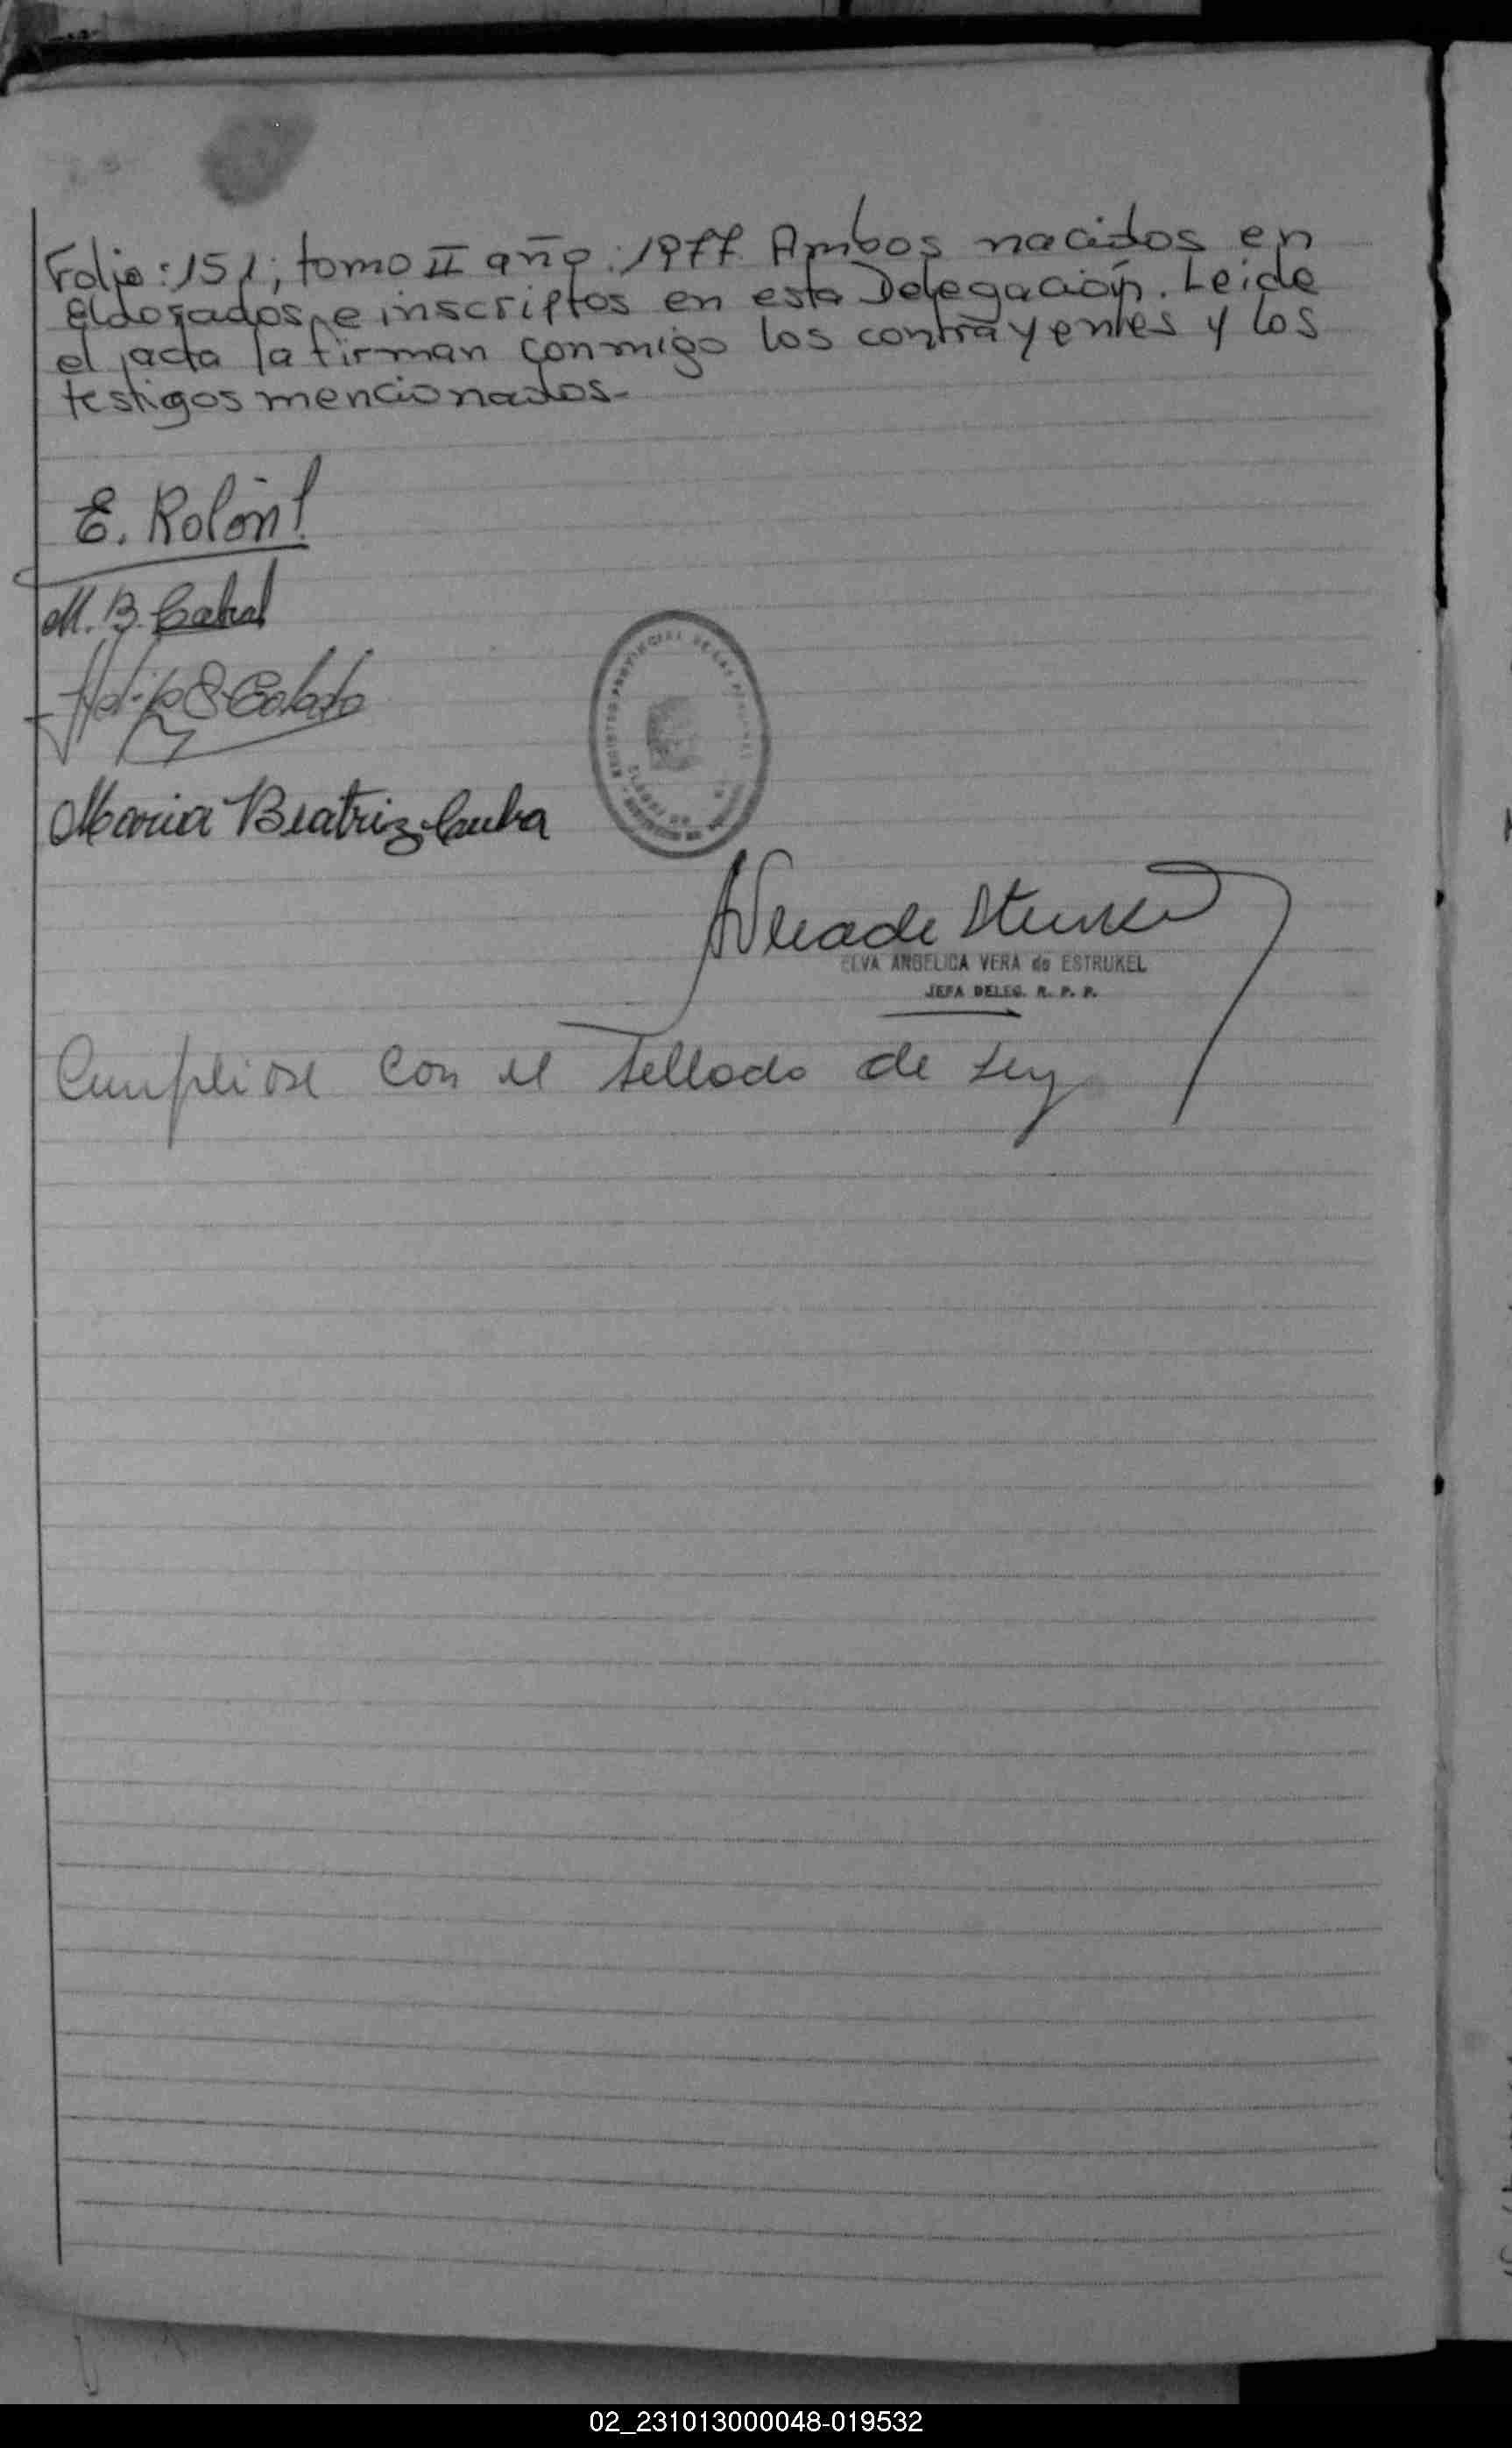 Folio: 151; tomo II año: 1977. Ambos nacidos en
Eldorados, e inscriptos en esta Delegación. Leide
el acta la firman conmigo los contrayentes y los
testigos mencionados-
E. Rolón
M. B. Cabral
Maria Beatriz Cunha
REGISTRO PROVINCIAL DE LAS PERSONAS
AVera de
ELVA ANGELICA VERA de ESTRUKEL
JEFA DELEG. R. P. P.
Cumpliose con el sellado de Ley
02_231013000048-019532